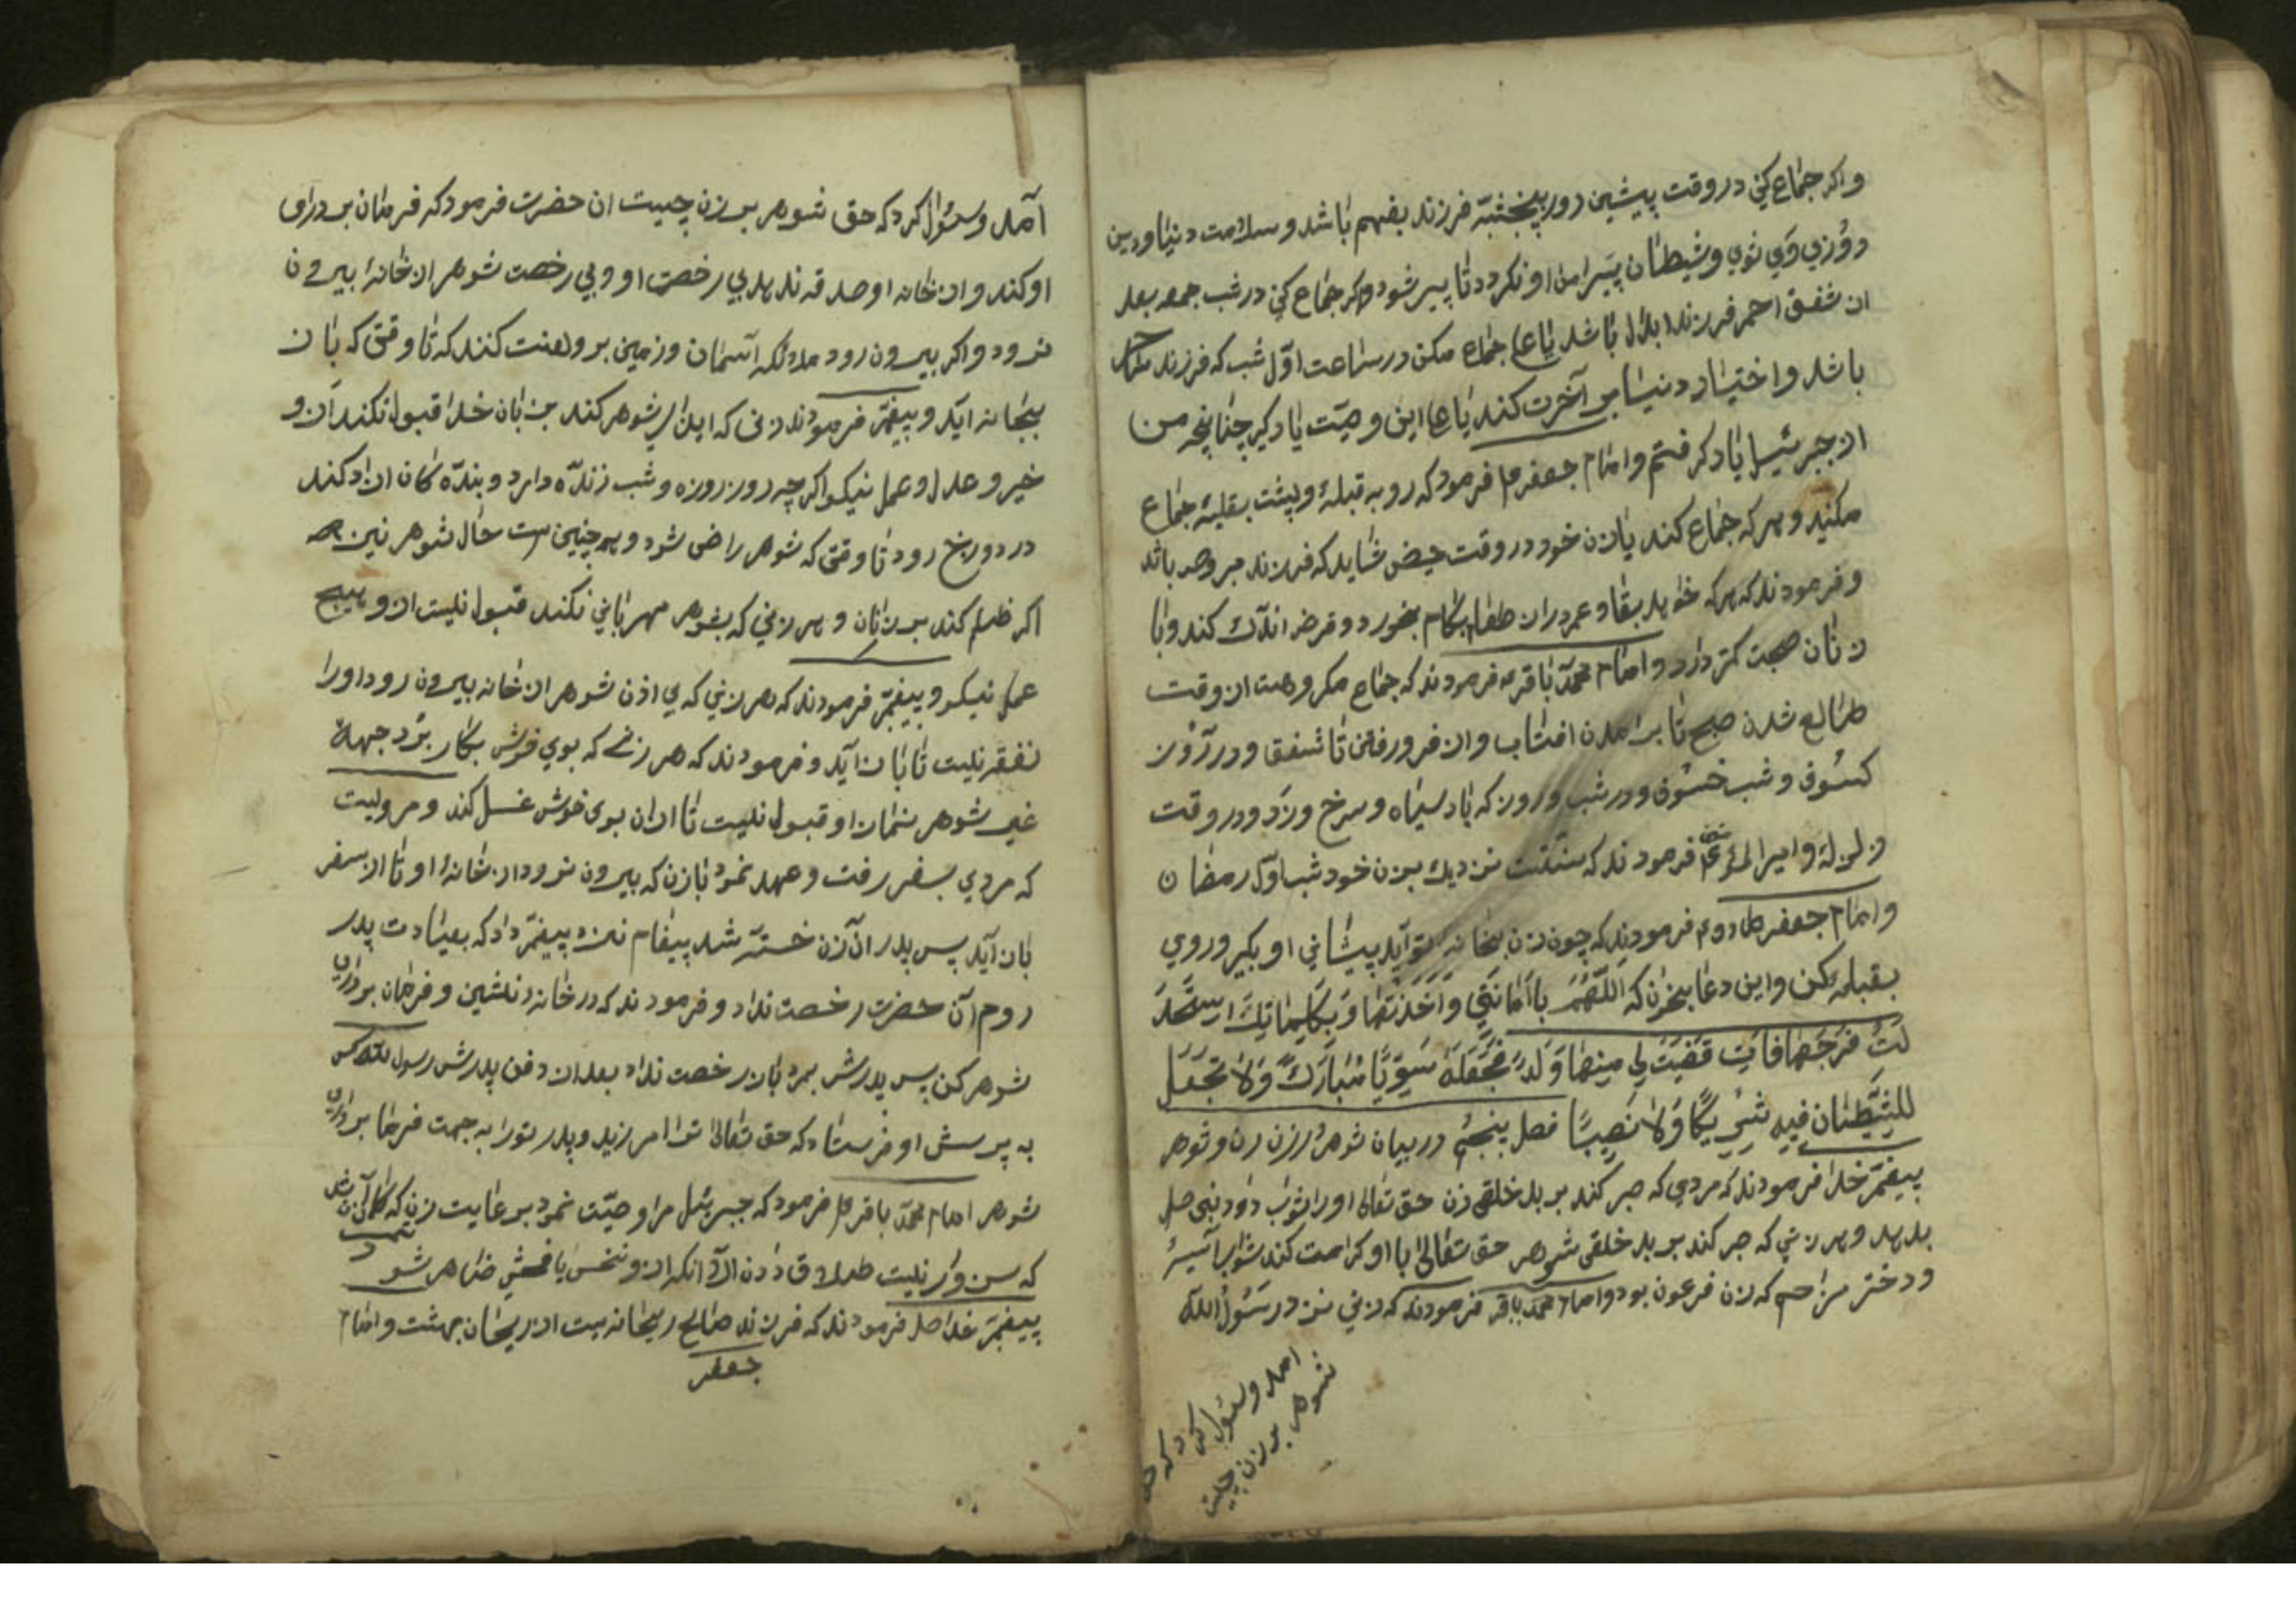 واکر جماع کني در وقت پیشین روز پنجشنبۀ فرزند بفهم باشد و سلامت دنیا و دین
روزي وي شوي و شیطان پیرامن او نکردد تا پیر شود و اکر جماع کني در شب جمعه بعد
از شفق احمر فرزند ابدال باشد یا علي جماع مکن در ساعت اوّل شب که فرزند
باشد و اختیار دنیا بر آخرت کند یا علي این وصیّت یاد کیر چنانچه من
از جبرئیل یاد کرفتم و امام جعفر ع فرمود که رو به قبلۀ و پشت بقبلۀ جماع
مکنید و هر که جماع کند بازن خود در وقت حیض شاید که فرزند مبروص باشد
و فرمودند که هر که خواهد بقا و عمر دراز طعام بکام بخورد و قرض اندک کند و با
زنان صحبت کمتر دارد و امام محمّد باقر ع فرمودند که جماع مکروهست از وقت
طالع شدن صبح تا برامدن افتاب و از فرو رفتن تا شفق و در روز
کسوف و شب خسوف و در شب و روز که باد سیاه و سرخ و زرد و در وقت
زلزلۀ و امیر المؤمنین فرمودند که سنّتست نزدیك بزن خود شب اوّل رمضان
و امام جعفر صادق ع فرمودند که چون زن بخانه تو آید پیشاني او بکیر و روي
بقبله کن و این دعا بخوان که اَللّهُمَّ باَمانَتِي وَاَخَذتَها وَبَکَلِماتِكَ استَحلَ
لَتُ فَرَجَها فَاِن قَضَيتَ لي مِنها وَلَدً فَجعَلهُ سَوِيًّا مُبارَكً وَلا تَجعَل
لِلشَّيطانِ فيهِ شِرِيکًا وَلا نَصِيبًا فصل پنجم در بیان شوهر ورزن زن و شوهر
پیغمبر خدا فرمودند که مردي که صبر کند بر بد خلقي زن حق تعالی او را ثواب داود نبي صلي
بدهد و هر زني که صبر کند بر بد خلقي شوهر حق تعالی با او کرامت کند ثواب آسیۀ
و دختر مزاحم که زن فرعون بود و امام محمد باقر فرمودند که زني نزد رسول اللّه
امد و سئول کرد که حق
شوهر بر زن چیست
آمد و سئوال کرد که حق شوهر بر زن چیست ان حضرت فرمود که فرمان برداری
او کند و از خانه او صدقه ندهد بي رخصت او و بي رخصت شوهر از خانۀ بیرون
نرود و اکر بیرون رود ملائکه آسمان و زمین بر و لعنت کنند که تا وقتي که باز
بخانه آید و پیغمبر فرمودند زني که ایذاي شوهر کند بزبان خدا قبول نکند از و
خیر و عدل و عمل نیکو اکر چه روز روزه و شب زنده دارد و بنده کان ازاد کند
در دوزخ رود تا وقتي که شوهر راضي شود و همچنین ست حال شوهر نیز هر
اکر ظلم کند بر زنان و هر زني که بشوهر مهرباني نکند قبول نیست از و هیچ
عمل نیکو و پیغمبر فرمودند که هر زني که بي اذن شوهر از خانه بیرون رود او را
نفقه نیست تا باز آید و فرمودند که هر زني که بوي خوش بکار برد جهۀ
غیر شوهر نماز او قبول نیست تا از ان بوي خوش غسل کند و مرویست
که مردي بسفر رفت و عهد نمود بازن که بیرون نرود از خانۀ او تا از سفر
باز آید پس پدر ان زن خسته شد پیغام نزد پیغمبر داد که بعیادت پدر
روم آن حضرت رخصت نداد و فرمودند که در خانه نشین و فرمان برداري
شوهر کن پس پدرش بمرد باز رخصت نداد بعد از دفن پدرش رسول اللّه کس
به پرسش او فرستاد که حق تعالی ترا امرزید و پدر تو را به جهت فرمان برداري
شوهر امام محمّد باقر ع فرمود که جبرئیل مرا وصیّت نمود بر عایت زن که
که سزاوار نیست طلاق دادن الّا انکه از و فحش ظاهر شود
پیغمبر خدا صل فرمودند که فرزند صالح ریحانه یست از ریحان بهشت و امام
جعفر